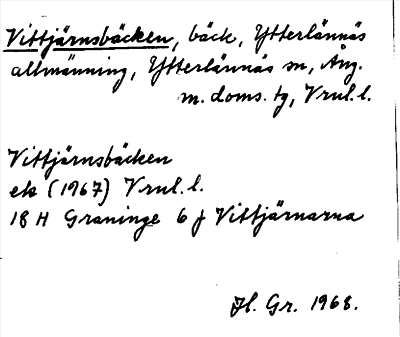 Vittjärnsbäcken, bäck, Ytterlännäs
allmänning, Ytterlännäs sn, Ång.
m. doms. tg, Vrnl. l.
Vittjärnsbäcken
ek (1967) Vrnl. l.
18 H Graninge 6 f Vittjärnarna
Hl. Gr. 1968.